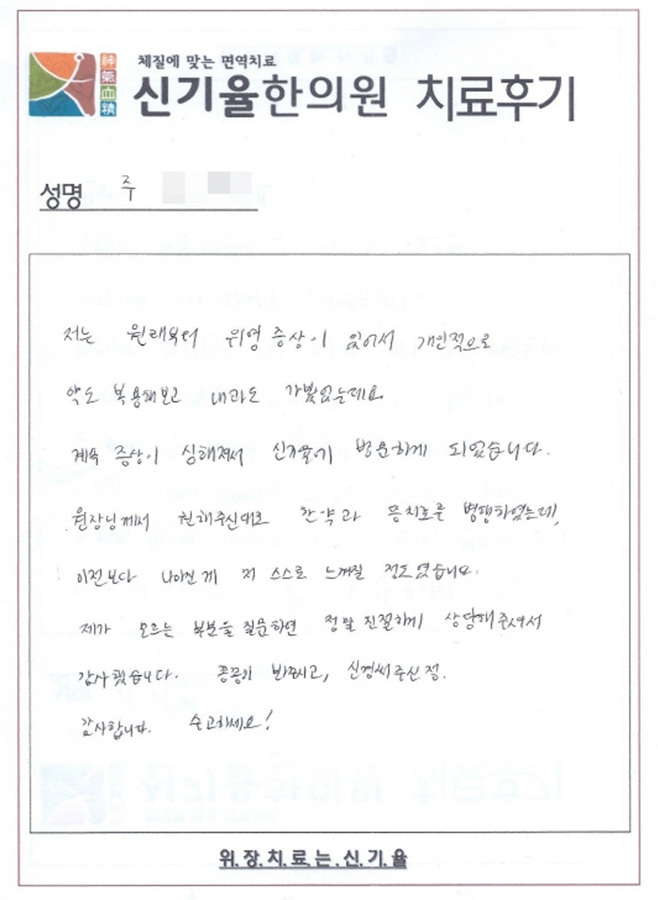 체질에 맞는 면역치료
神氣血精
신기율한의원 치료후기
성명 주
저는 원래부터 위염 증상이 있어서 개인적으로
약도 복용해보고 내과도 가봤었는데요
계속 증상이 심해져서 신기율에 방문하게 되었습니다.
원장님께서 권해주신대로 한약과 뜸치료를 병행하였는데,
이전보다 나아진게 저 스스로 느껴질 정도였습니다.
제가 모르는 부분을 질문하면 정말 친절하게 상담해주셔서
감사했습니다. 꼼꼼히 봐주시고, 신경써주신 점.
감사합니다. 수고하세요!
위.장.치.료.는.신.기.율